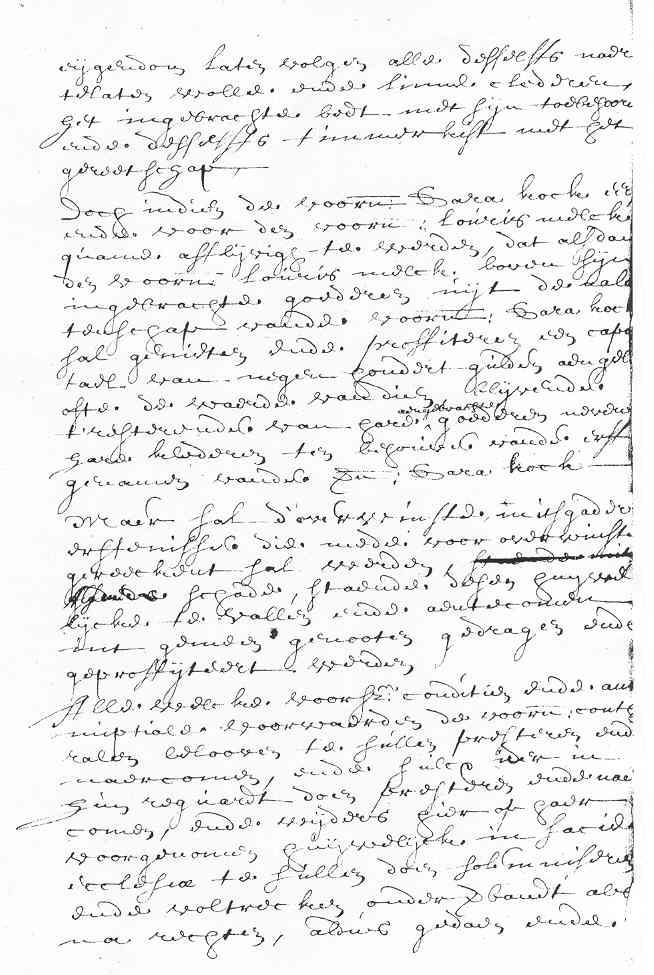 eijgendom laten volgen alle desselffs naer
telaten wolle ende linne clederen,
het ingebrachte bedt met sijn toebehoor
ende desselffs timmerkist met het
gereetschap,
Doch indien de voorn: Sara kock eer
ende voor den voorn: Louris melcke
quame afflijvigh te werden, dat alsdan
den voorn: Louris melck boven sijn
ingebrachte goederen uijt de nala
tenschap vande voorn: Sara kock
sal genieten ende proffiteren een capi
tael van negen hondert gulden aen gel
ofte de waerde van dien blijvende
t'resterende van hare aengebrachte goederen nevens
hare klederen ten behouve vande erff
genamen vande Sara kock
Maer sal d'overwinste, mitsgaders
erffenisse die mede voor overwinste
gereeckent sal werden,
schade, staende desen houwel
lijcke te vallen ende aentecomen
int gemeen genooten gedragen ende
geproffijteert werden
Alle welcke voorsz: conditien ende ant
nuptiale voorwaerden de voorn: cont
ralen belooven te sullen presteren end
naercomen, ende sulcx ider in
sijn reguardt doen presteren ende nae
comen, ende wijders hier op haer
voorgenomen houwelijck in facie
ecclesiæ te sullen doen solemniseren
ende voltrecken onder verbandt als
na rechten, aldus gedaen ende